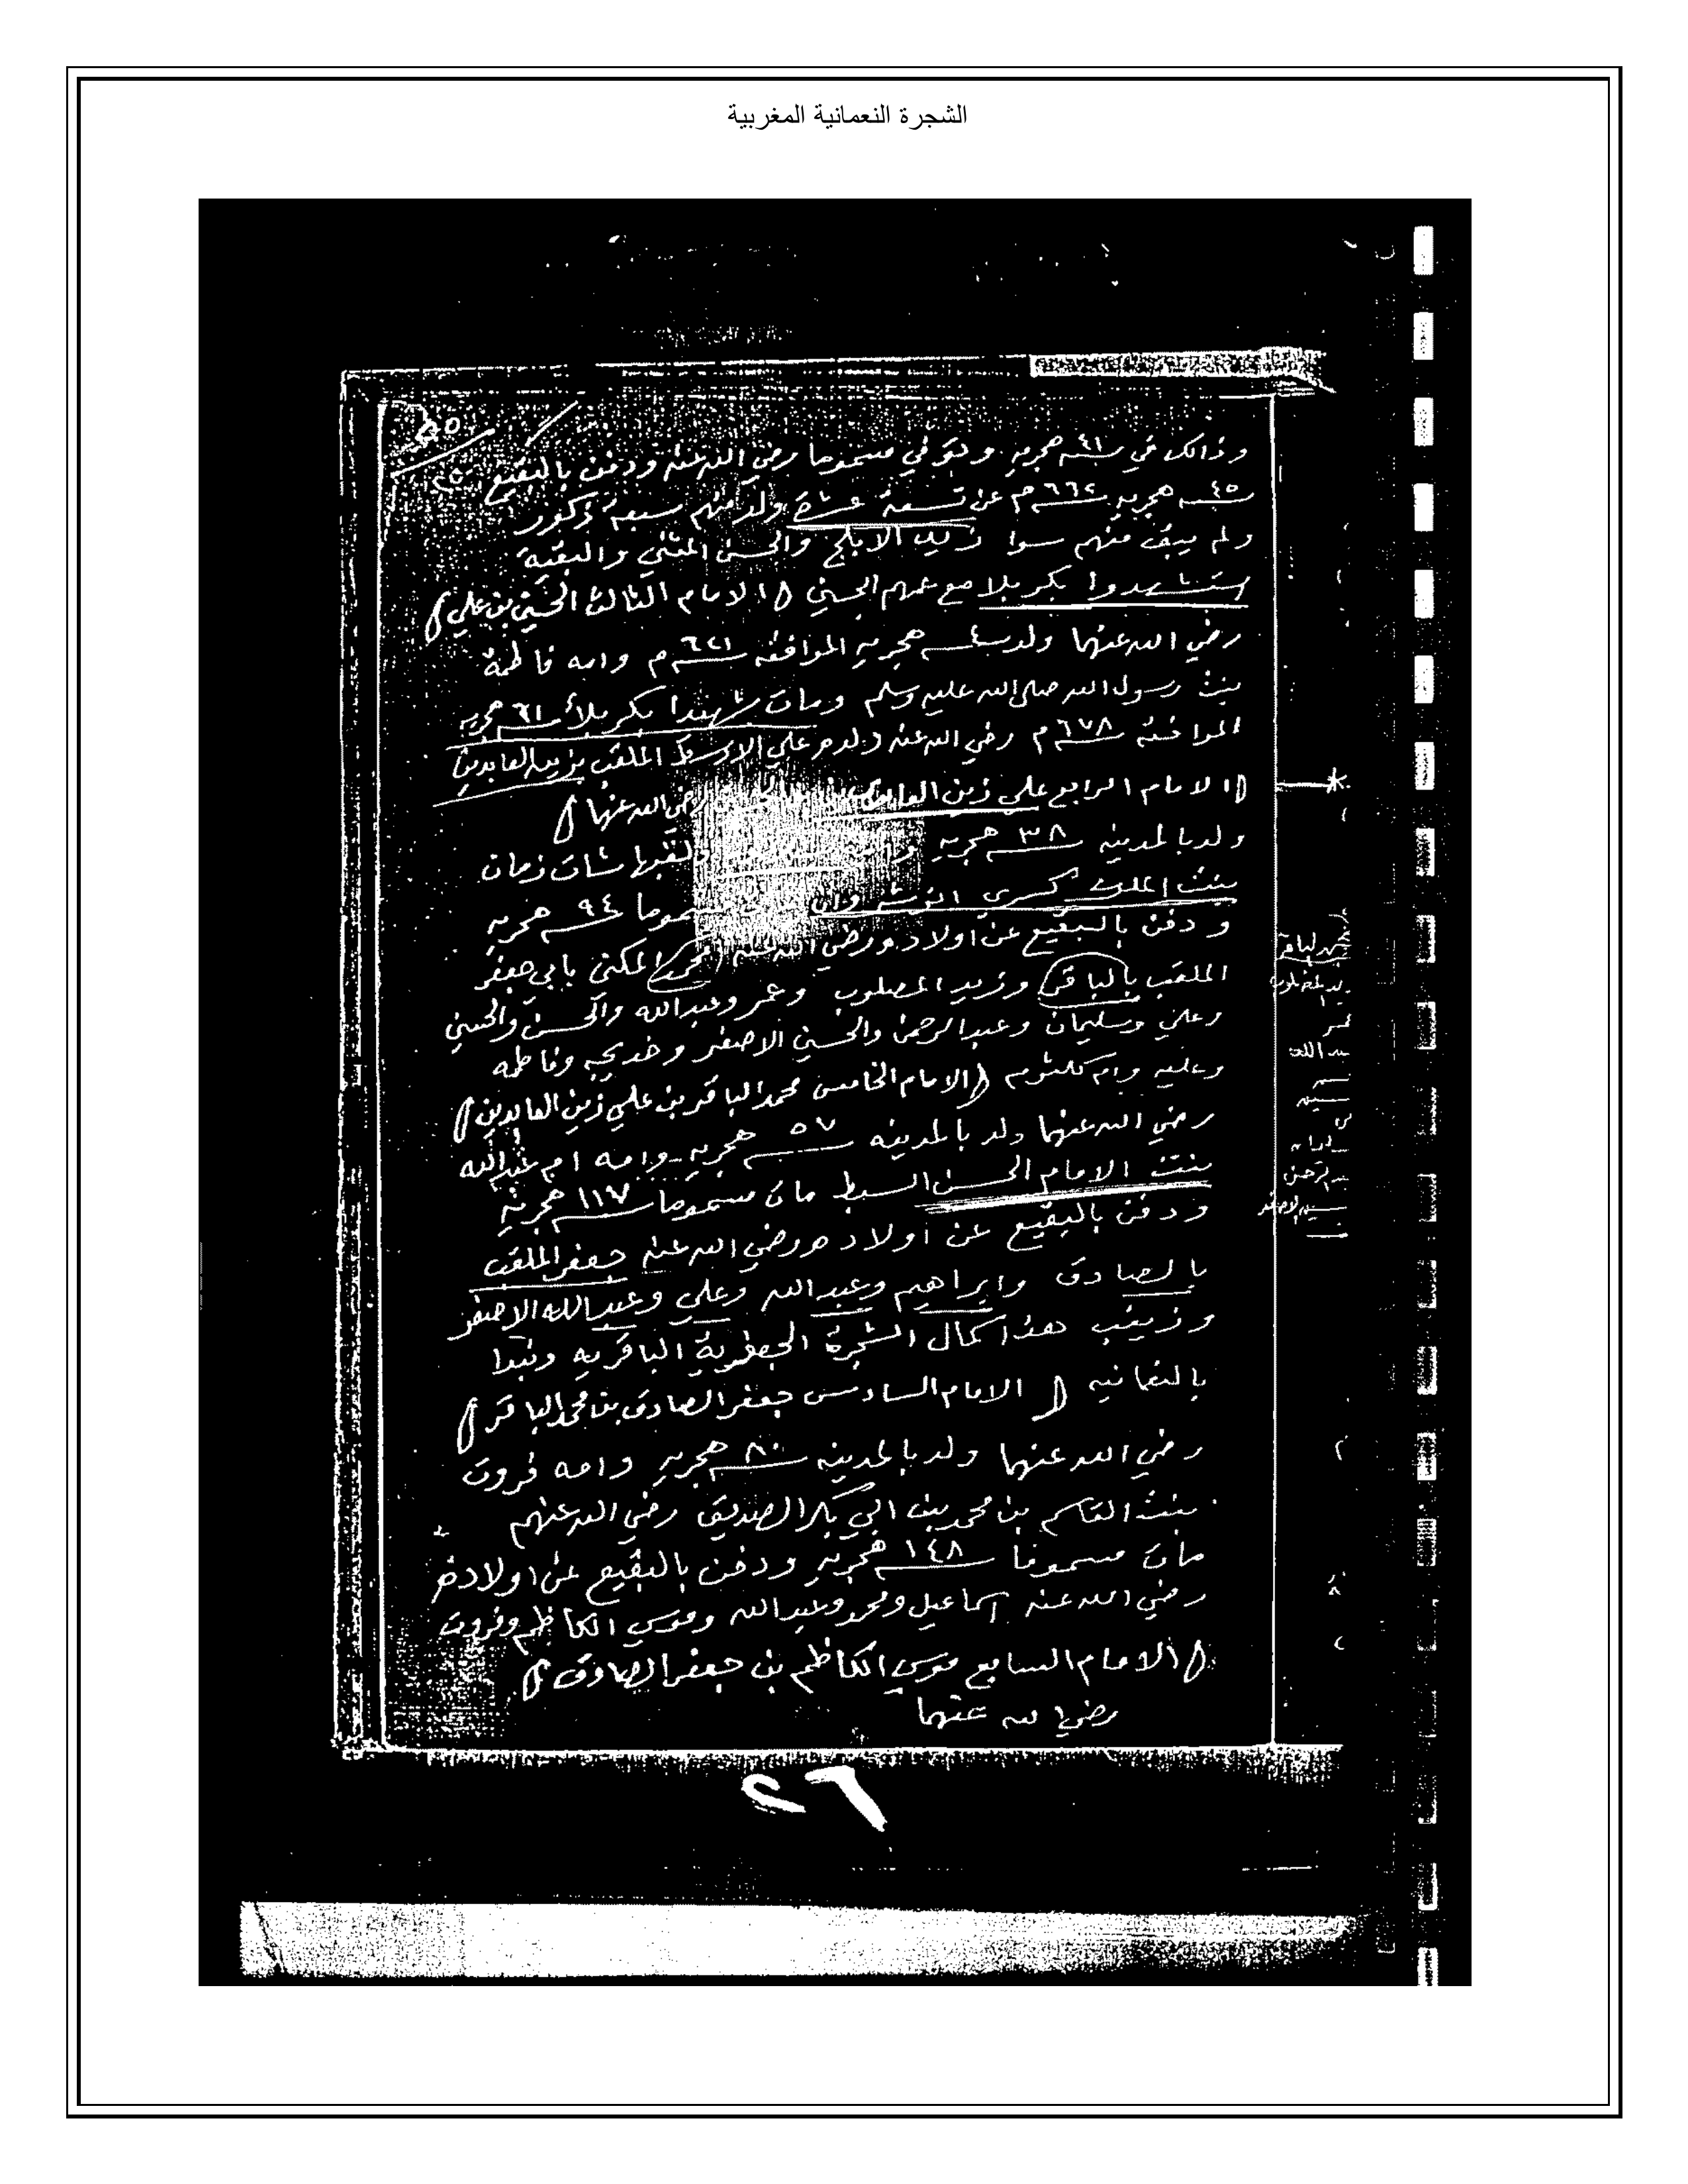 الشجرة النعمانية المغربية
وذالك في سنة ٤١ هجريه وتوفي مسموما رضي الله عنه ودفن بالبقيع
سنة ٤٥ هجريه سنة ٦٦٢ م عن تسعة عشرة ولد منهم سبعة ذكور
ولم يبق منهم سوا زيد الابلج والحسن المثني والبقية
استشهدوا بكربلا مع عمهم الحسين (الامام الثالث الحسين بن علي)
رضي الله عنهما ولد سنة ٤ هجريه الموافقه سنة ٦٢١ م وامه فاطمة
بنت رسول الله صلى الله عليه وسلم ومات شهيدا بكربلأ سنة ٦١ هجريه
الموافقة سنة ٦٧٨ م رضي الله عنه ولده علي الاوسط الملقب بزين العابدين
(الامام الرابع علي زين العابدين رضي الله عنهما)
ولد بالمدينه سنة ٣٨ هجريه ولقبها شات زمان
بنت الملك كسرى انوشروان مسموما سنة ٩٤ هجريه
ودفن بالبقيع عن اولاده ورضي الله عنه محمد المكنى بابي جعفر
الملقب بالباقر وزيد المصلوب وعمر وعبدالله والحسن والحسين
وعلي وسليمان وعبدالرحمن والحسين الاصغر وخديجه وفاطمه
وعليه وام كلثوم (الامام الخامس محمد الباقر بن علي زين العابدين)
رضي الله عنهما ولد بالمدينه سنة ٥٧ هجريه وامه ام عبدالله
بنت الامام الحسن السبط مات مسموما سنة ١١٧ هجرية
ودفن بالبقيع عن اولاده ورضي الله عنه جعفر الملقب
بالصادق وابراهيم وعبدالله وعلي وعبدالله الاصغر
وزينب هذا كمال الشجرة الجعفرية الباقريه ونبدا
بالنعمانيه (الامام السادس جعفر الصادق بن محمد الباقر)
رضي الله عنهما ولد بالمدينه سنة ٨٠ هجريه وامه فروت
بنت القاسم بن محمد بن ابي بكر الصديق رضي الله عنهم
مات مسموما سنة ١٤٨ هجريه ودفن بالبقيع عن اولاده
رضي الله عنه اسماعيل ومحمد وعبدالله وموسي الكاظم وفروت
(الامام السابع موسي الكاظم بن جعفر الصادق)
رضي الله عنهما
٢٦